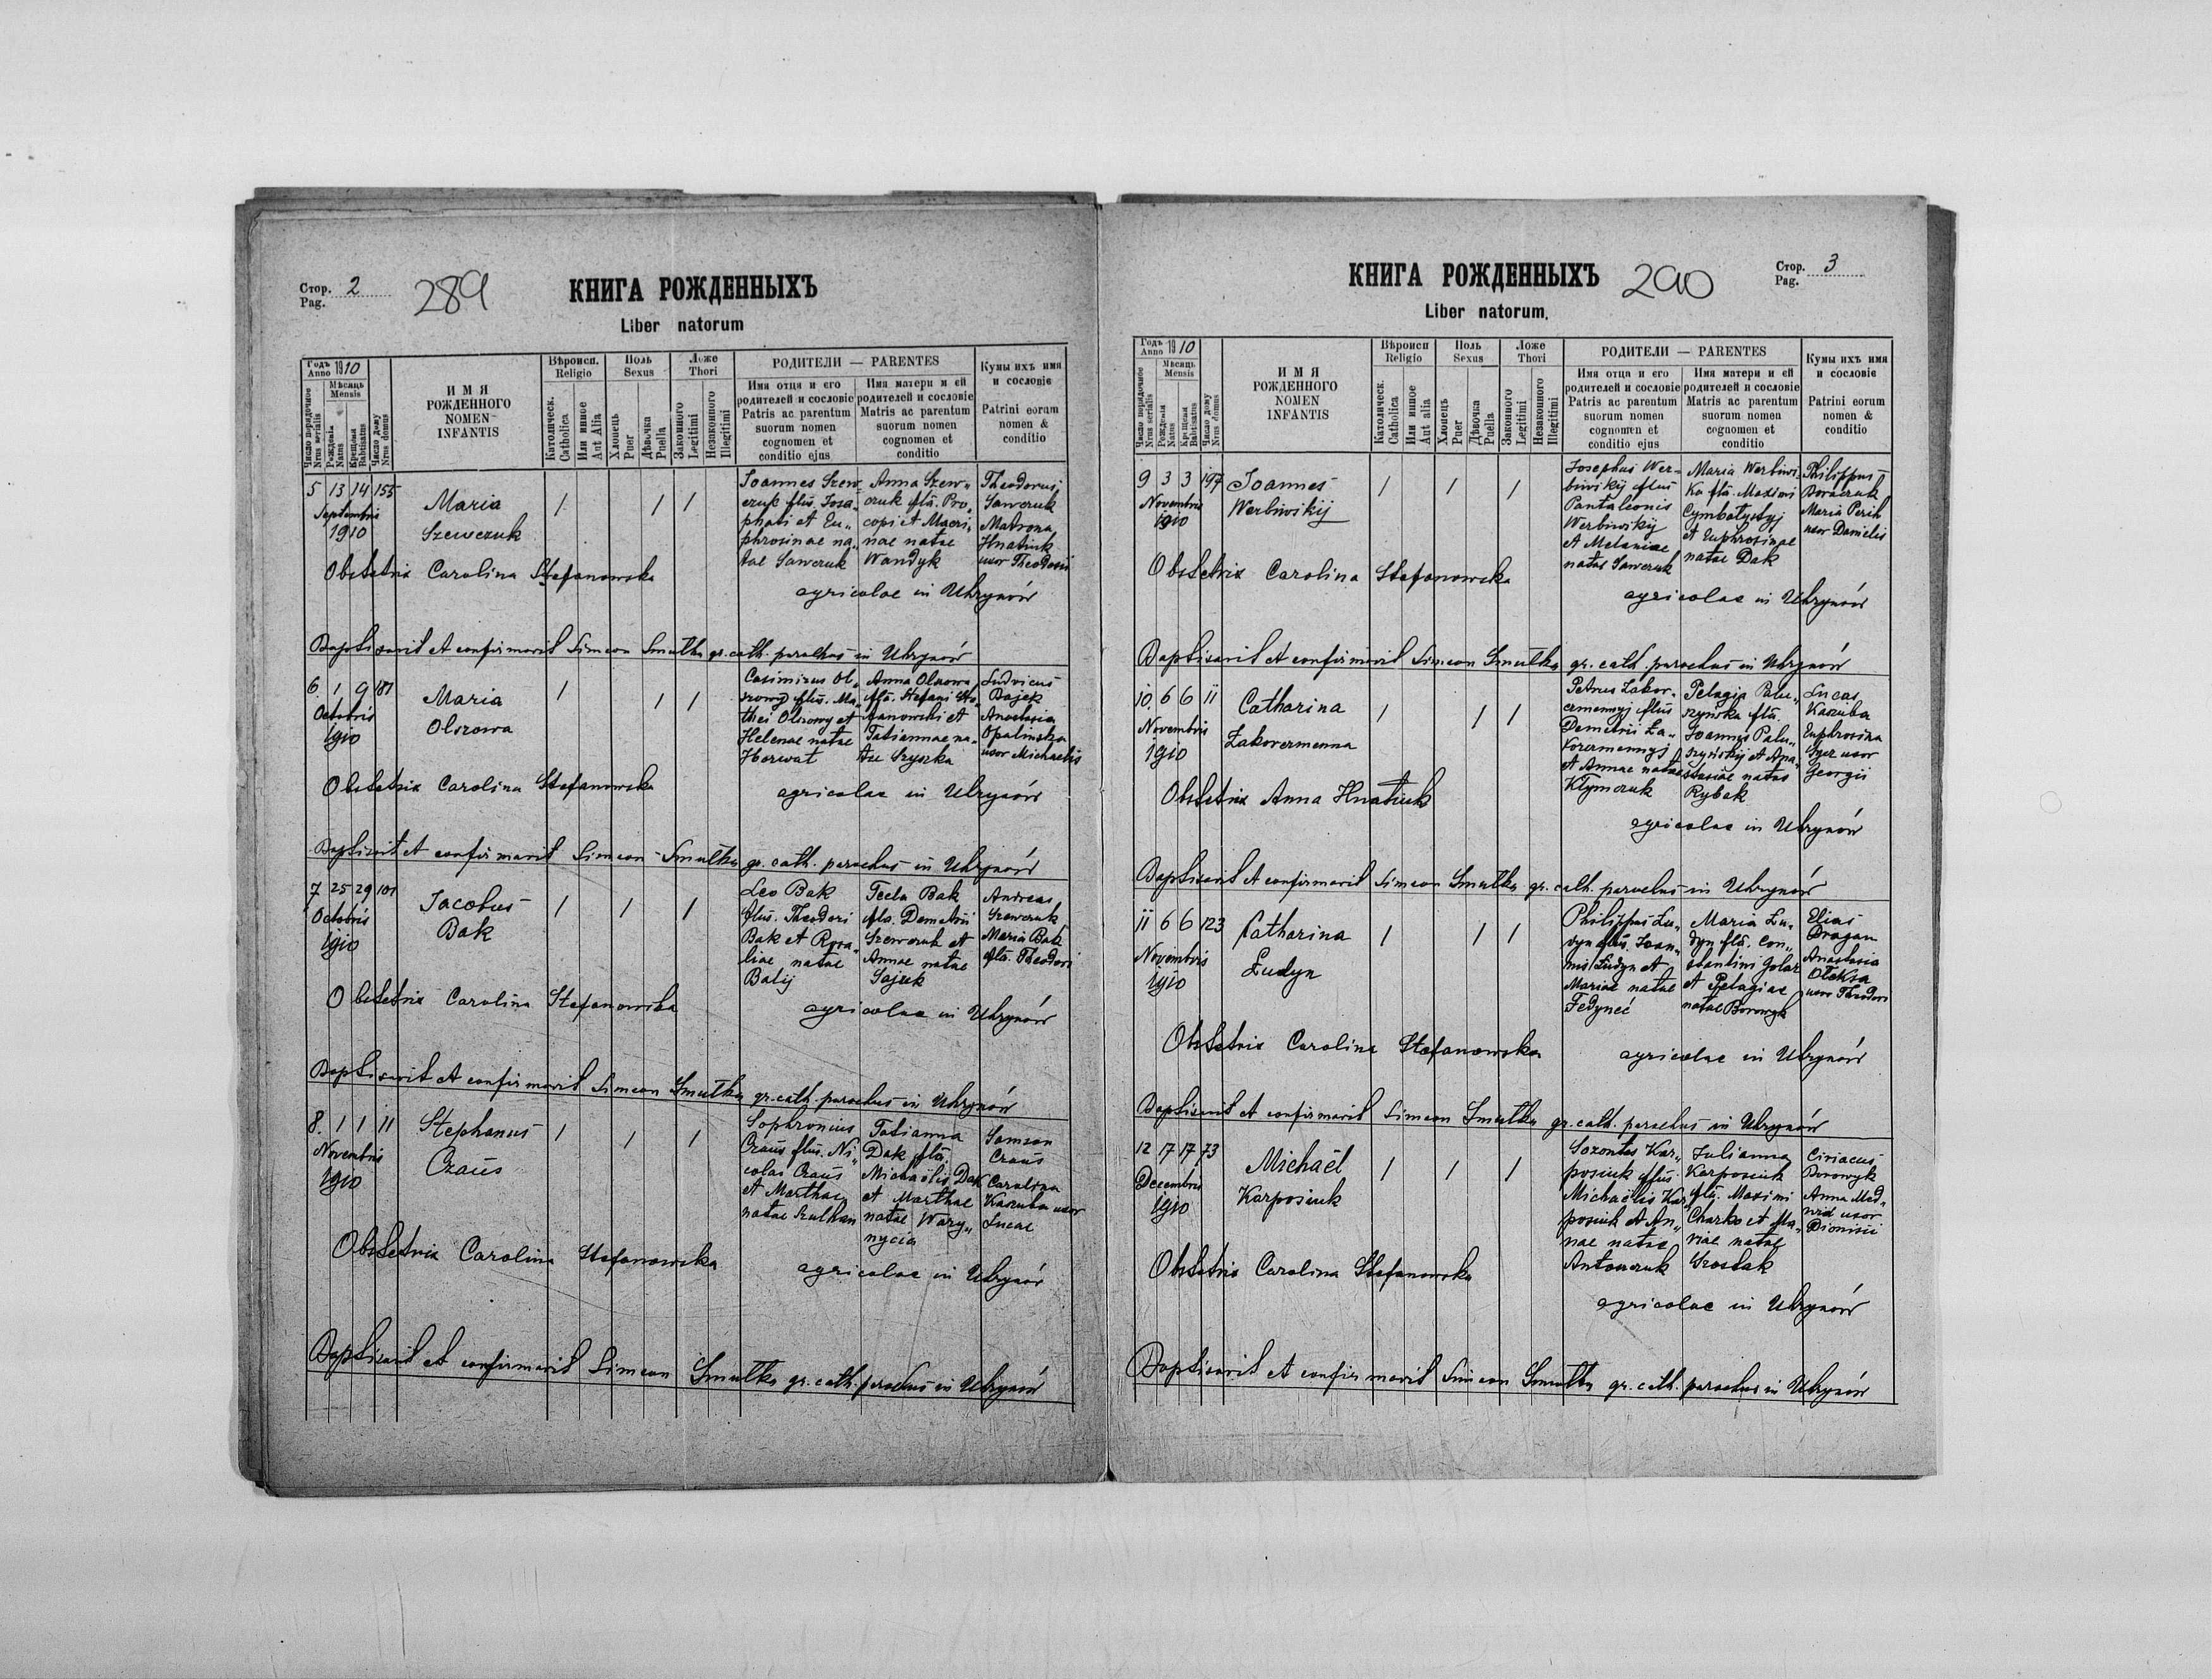 Стор. 2
Pag.
289
КНИГА РОЖДЕННЫХЪ
Liber natorum
Годъ
Anno 1910
Мѣсяць
Mensis
Число порядочное
Nrus serialis
Рожденія
Natus
Крещенія
Babtisatus
Число дому
Nrus domus
ИМЯ
РОЖДЕННОГО
NOMEN
INFANTIS
Вѣроисп.
Religio
Католическ.
Catholica
Или инное
Aut Alia
Поль
Sexus
Хлопець
Puer
Дѣвочка
Puella
Ложе
Thori
Законного
Legitimi
Незаконного
Illegitimi
РОДИТЕЛИ — PARENTES
Имя отца и его
родителей и сословіе
Patris ac parentum
suorum nomen
cognomen et
conditio ejus
Имя матери и ей
родителей и сословіе
Matris ac parentum
suorum nomen
cognomen et
conditio
Кумы ихъ имя
и сословіе
Patrini eorum
nomen &
conditio
5 13 14 155
Septembris
1910
Maria
Szewczuk
/ / /
Joannes Szew„
czuk flus. Josa„
phati et Eu„
phrosinae na„
tae Sawczuk
Anna Szew„
czuk fla. Pro„
copi et Macri„
nae natae
Wandyk
Theodorus
Sawczuk
Matrona
Hnatiuk
uxor Theodosii
Obstetrix Carolina Stefanowska
agricolae in Uhrynów
Baptisavit et confirmavit Simeon Smulka gr. cath. parochus in Uhrynów
6. 1 9 181
Octobris
1910
Maria
Olszowa
/ / /
Casimirus Ol„
szowy flus. Ma„
thei Olszowy et
Helenae natae
Horwat
Anna Olszowa
fla. Stefani Ste„
fanowski et
Tatiannae na„
tae Szyszka
Ludvicus
Bajek
Anastasia
Opalinska
uxor Michaelis
Obstetrix Carolina Stefanowska
agricolae in Uhrynów
Baptisavit et confirmavit Simeon Smulka gr. cath. parochus in Uhrynów
7 25 29 101
Octobris
1910
Jacobus
Bak
/ / /
Leo Bak
flus. Theodori
Bak et Rosa„
liae natae
Balij
Tecla Bak
fla. Demetrii
Szewczuk et
Annae natae
Sajuk
Andreas
Szewczuk
Maria Bak
fla. Theodori
Obstetrix Carolina Stefanowska
agricolae in Uhrynów
Baptisavit et confirmavit Simeon Smulka gr. cath. parochus in Uhrynów
8. 1 1 11
Novembris
1910
Stephanus
Czaus
/ / /
Sophronius
Czaus flus. Ni„
colai Czaus
et Marthae
natae Szulhan
Tatianna
Dak fla.
Michaëlis Dak
et Marthae
natae Wary„
nycia
Samson
Czaus
Carolina
Kaszuba uxor
Lucae
Obstetrix Carolina Stefanowska
agricolae in Uhrynów
Baptisavit et confirmavit Simeon Smulka gr. cath. parochus in Uhrynów
КНИГА РОЖДЕННЫХЪ
290
Стор. 3
Pag.
Liber natorum.
Годъ
Anno 1910
Мѣсяць
Mensis
Число порядочное
Nrus serialis
Рожденія
Natus
Крещенія
Babtisatus
Число дому
Nrus domus
ИМЯ
РОЖДЕННОГО
NOMEN
INFANTIS
Вѣроисп.
Religio
Католическ.
Catholica
Или инное
Aut alia
Поль
Sexus
Хлопець
Puer
Дѣвочка
Puella
Ложе
Thori
Законного
Legitimi
Незаконного
Illegitimi
РОДИТЕЛИ — PARENTES
Имя отца и его
родителей и сословіе
Patris ac parentum
suorum nomen
cognomen et
conditio ejus
Имя матери и ей
родителей и сословіе
Matris ac parentum
suorum nomen
cognomen et
conditio
Кумы ихъ имя
и сословіе
Patrini eorum
nomen &
conditio
9 3 3 197
Novembris
1910
Joannes
Werbiwskij
/ / /
Josephus Wer„
biwskij flus
Pantaleonis
Werbiwskij
et Melaniae
natae Sawczuk
Maria Werbiws„
ka fla. Maximi
Cymbalystyj
et Euphrosinae
natae Dak
Philippus
Maria Perih
uxor Danielis
Obstetrix Carolina Stefanowska
agricolae in Uhrynów
Baptisavit et confirmavit Simeon Smulka gr. cath. parochus in Uhrynów
10. 6 6 11
Novembris
1910
Catharina
Zakorermenna
/ / /
Petrus Zakor„
ermennyj flus
Demetrii Za„
korermennyj
et Annae natae
Klymczuk
Pelagia Palu„
szynska fla.
Joannes Palu„
szynskij et Ana„
stasiae natae
Rybak
Lucas
Kaszuba
Euphrosina
uxor
Georgii
Obstetrix Anna Hnatiuk
agricolae in Uhrynów
Baptisavit et confirmavit Simeon Smulka gr. cath. parochus in Uhrynów
11 6 6 123
Novembris
1910
Catharina
Ludyn
/ / /
Philippus Lu„
dyn flus. Joan„
nis Ludyn et
Mariae natae
Fedyneć
Maria Lu„
dyn fla. Con„
stantini Golar
et Pelagiae
natae Borowyk
Elias
Dragan
Anastasia
Oleksa
uxor Theodori
Obstetrix Carolina Stefanowska
agricolae in Uhrynów
Baptisavit et confirmavit Simeon Smulka gr. cath. parochus in Uhrynów
12 17 17 73
Decembris
1910
Michaël
Karposiuk
/ / /
Sozontas Kar„
posiuk flus
Michaëlis Kar„
posiuk et An„
nae natae
Antonczuk
Julianna
Karposiuk
fla. Maximi
Charko et Ma„
riae natae
Szostak
Ciriacus
Borowyk
Anna Med„
wid uxor
Dionisii
Obstetrix Carolina Stefanowska
agricolae in Uhrynów
Baptisavit et confirmavit Simeon Smulka gr. cath. parochus in Uhrynów